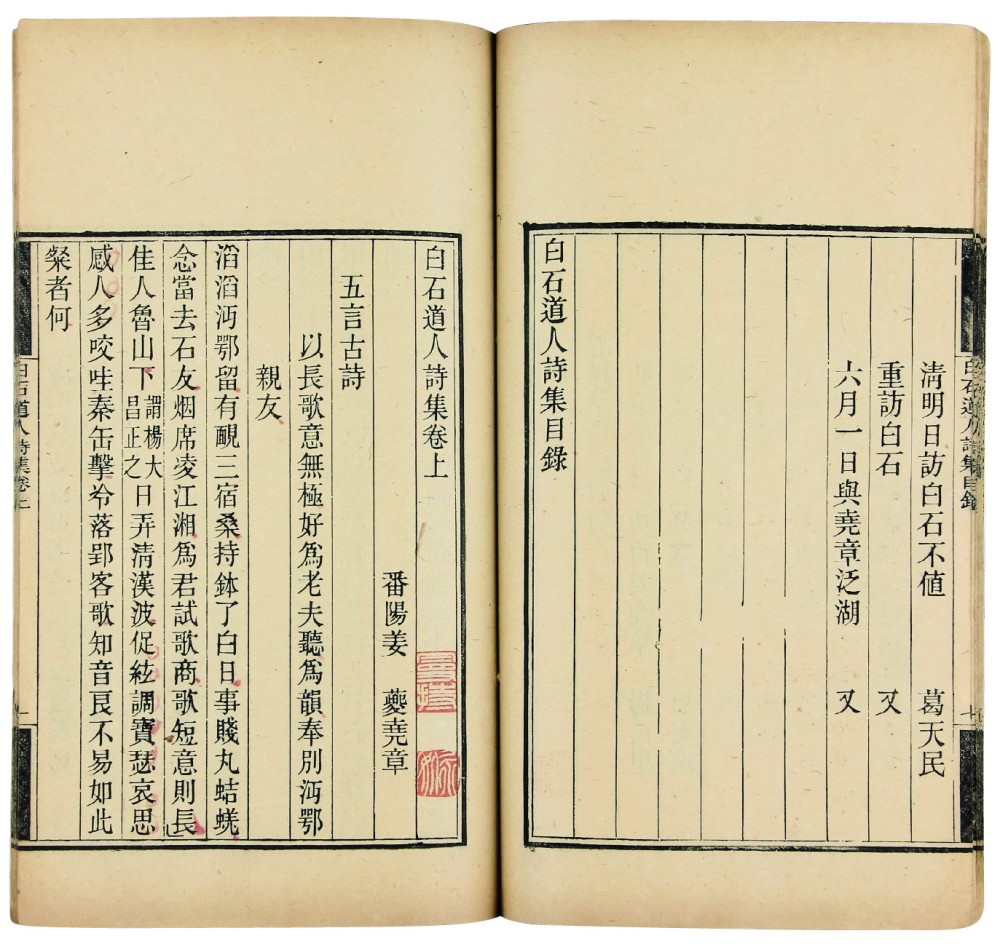 白石道人詩集目錄 七
清明日訪白石不值 葛天民
重訪白石 又
六月一日與堯章泛湖 又
白石道人詩集目錄
白石道人詩集卷上
番陽姜 夔堯章
五言古詩
以長歌意無極好爲老夫聽爲韻奉別沔鄂
親友
滔滔沔鄂留有靦三宿桑持鉢了白日事賤丸蛣蜣
念當去石友烟席凌江湘爲君試歌商歌短意則長
佳人魯山下謂楊大昌正之日弄清漢波促絃調寶瑟哀思
感人多咬哇秦缶擊冷落郢客歌知音良不易如此
粲者何
白石道人詩集卷上 一